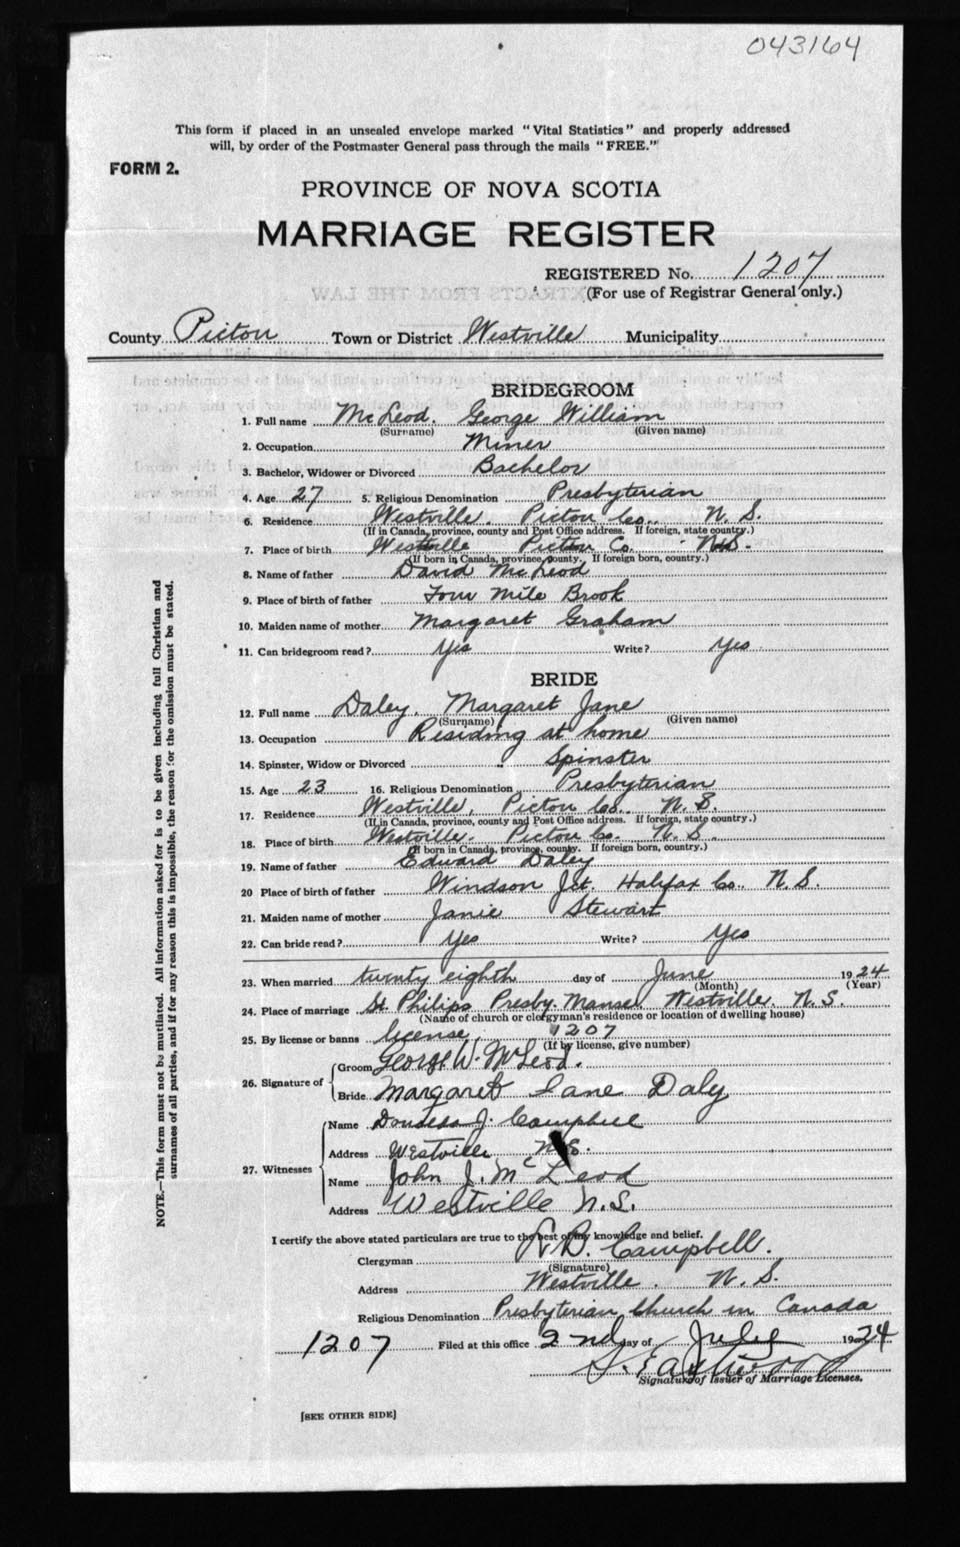 043164
This form if placed in an unsealed envelope marked "Vital Statistics" and properly addressed
will, by order of the Postmaster General pass through the mails "FREE."
FORM 2.
PROVINCE OF NOVA SCOTIA
MARRIAGE REGISTER
REGISTERED No. 1207
(For use of Registrar General only.)
County Pictou Town or District Westville Municipality
BRIDEGROOM
1. Full name McLeod. George William
(Surname) (Given name)
2. Occupation Miner
3. Bachelor, Widower or Divorced Bachelor
4. Age 27 5. Religious Denomination Presbyterian
6. Residence Westville. Pictou Co. N. S.
(If in Canada, province, county and Post Office address. If foreign, state country.)
7. Place of birth Westville Pictou Co. N.S.
(If born in Canada, province, county. If foreign born, country.)
8. Name of father David McLeod
9. Place of birth of father Four Mile Brook
10. Maiden name of mother Margaret Graham
11. Can bridegroom read? Yes Write? Yes
BRIDE
12. Full name Daley. Margaret Jane
(Surname) (Given name)
13. Occupation Residing at home
14. Spinster, Widow or Divorced Spinster
15. Age 23 16. Religious Denomination Presbyterian
17. Residence Westville, Pictou Co. N. S.
(If in Canada, province, county and Post Office address. If foreign, state country.)
18. Place of birth Westville. Pictou Co. N. S.
(If born in Canada, province, county. If foreign born, country.)
19. Name of father Edward Daley
20 Place of birth of father Windson Jct. Halifax Co. N. S.
21. Maiden name of mother Janie Stewart
22. Can bride read? Yes Write? Yes
23. When married twenty eighth day of June 1924
(Month) (Year)
24. Place of marriage St. Philips Presby. Manse, Westville. N. S.
(Name of church or clergyman's residence or location of dwelling house)
25. By license or banns license, 1207
(If by license, give number)
26. Signature of Groom George W. McLeod.
Bride Margaret Jane Daly
27. Witnesses
Name J. Campbell
Address Westville N.S.
Name John J. McLeod
Address Westville N.S.
I certify the above stated particulars are true to the best of my knowledge and belief.
Clergyman B. Campbell.
(Signature)
Address Westville. N. S.
Religious Denomination Presbyterian Church in Canada
1207 Filed at this office 2nd day of July 1924
Signature of Issuer of Marriage Licenses.
[SEE OTHER SIDE]
NOTE.—This form must not be mutilated. All information asked for is to be given including full Christian and
surnames of all parties, and if for any reason this is impossible, the reason for the omission must be stated.